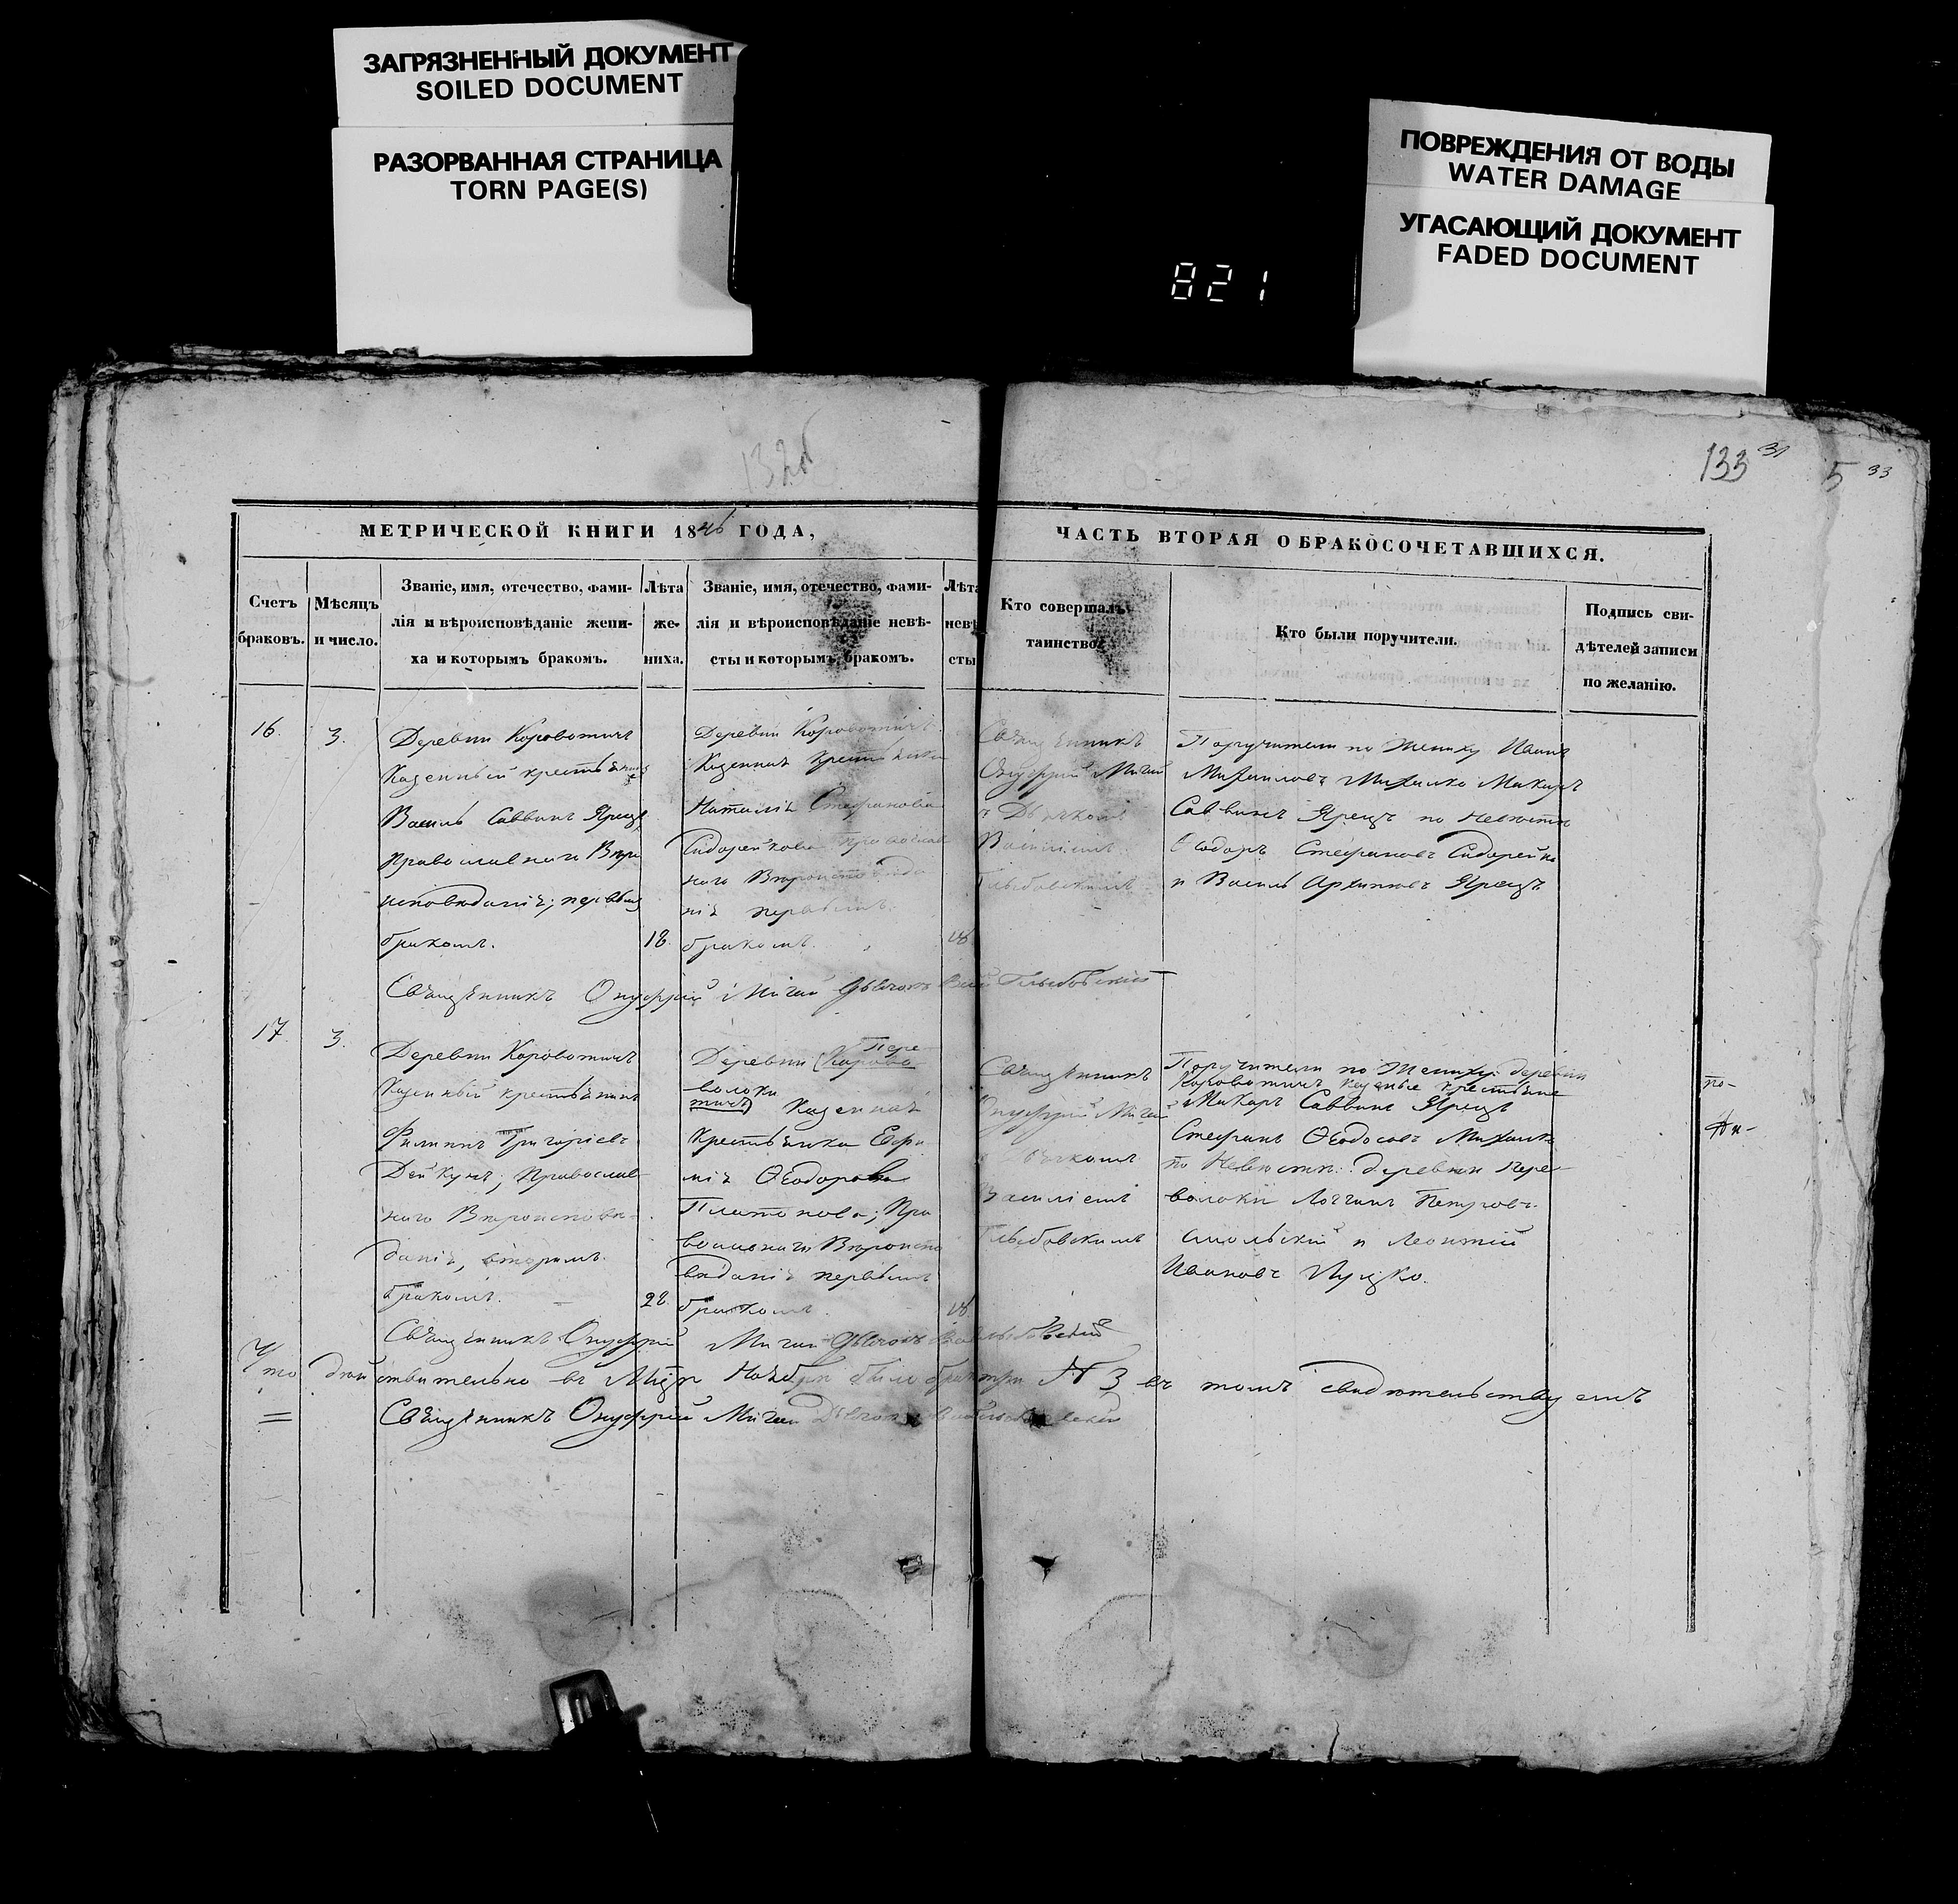 ЗАГРЯЗНЕННЫЙ ДОКУМЕНТ
SOILED DOCUMENT
РАЗОРВАННАЯ СТРАНИЦА
TORN PAGE(S)
ПОВРЕЖДЕНИЯ ОТ ВОДЫ
WATER DAMAGE
УГАСАЮЩИЙ ДОКУМЕНТ
FADED DOCUMENT
821
132об
133 31 5 33
МЕТРИЧЕСКОЙ КНИГИ 1846 ГОДА,
ЧАСТЬ ВТОРАЯ О БРАКОСОЧЕТАВШИХСЯ.
Счетъ
браковъ.
Мѣсяцъ
и число.
Званіе, имя, отечество, фами-
лія и вѣроисповѣданіе жени-
ха и которымъ бракомъ.
Лѣта
же-
ниха.
Званіе, имя, отечество, фами-
лія и вѣроисповѣданіе невѣ-
сты и которымъ бракомъ.
Лѣта
невѣ
сты
Кто совершалъ
таинство.
Кто были поручители.
Подпись сви-
дѣтелей записи
по желанію.
16.
3.
Деревни Коровотичъ
Казенный крестьянинъ
Василь Саввинъ Ярецъ
Православнаго Вѣро
исповѣданія; первымъ
бракомъ.
18.
Деревни Коровотичъ
Казенная крестьянка
Наталія Стефанова
Сидорейкова Православ
наго Вѣроисповѣда
нія первымъ
бракомъ.
18.
Священникъ
Онуфрій Мигай
съ Дьячкомъ
Василіемъ
Глыбовскимъ
Поручители по Жениху Иванъ
Михайловъ Михалко Макаръ
Саввинъ Ярецъ по Невѣстѣ
Ѳеодоръ Стефановъ Сидорейко
и Василь Архиповъ Ярецъ
Священникъ Онуфрій Мигай Дьячокъ Васи Глыбовскій
17.
3.
Деревни Коровотичъ
Казенный крестьянинъ
Филиппъ Григоріевъ
Дейкунъ; Православ
наго Вѣроисповѣ-
данія, вторымъ
бракомъ.
28.
Пере
Деревни (Корово
волоки
тичъ) Казенная
крестьянка Ефи
мія Ѳеодорова
Платонова; Пра
вославнаго Вѣроиспо
вѣданія первымъ
бракомъ.
18.
Священникъ
Онуфрій Мигай
съ Дьячкомъ
Василіемъ
Глыбовскимъ
Поручители по Жениху: деревни
Коровотичъ казеные крестьяне
Макаръ Саввинъ Ярецъ
Стефанъ Ѳеодосовъ Михалко
по Невѣстѣ: деревни Пере-
волоки Логгинъ Петровъ
и Леонтій
Ивановъ
по-
Священникъ Онуфрій Мигай Дьячокъ Глыбовскій
Что дѣйствительно въ Мцѣ Ноябрѣ было браковъ № 3 въ томъ свидѣтельствуемъ
Священникъ Онуфрій Мигай Дьячокъ Глыбовскій